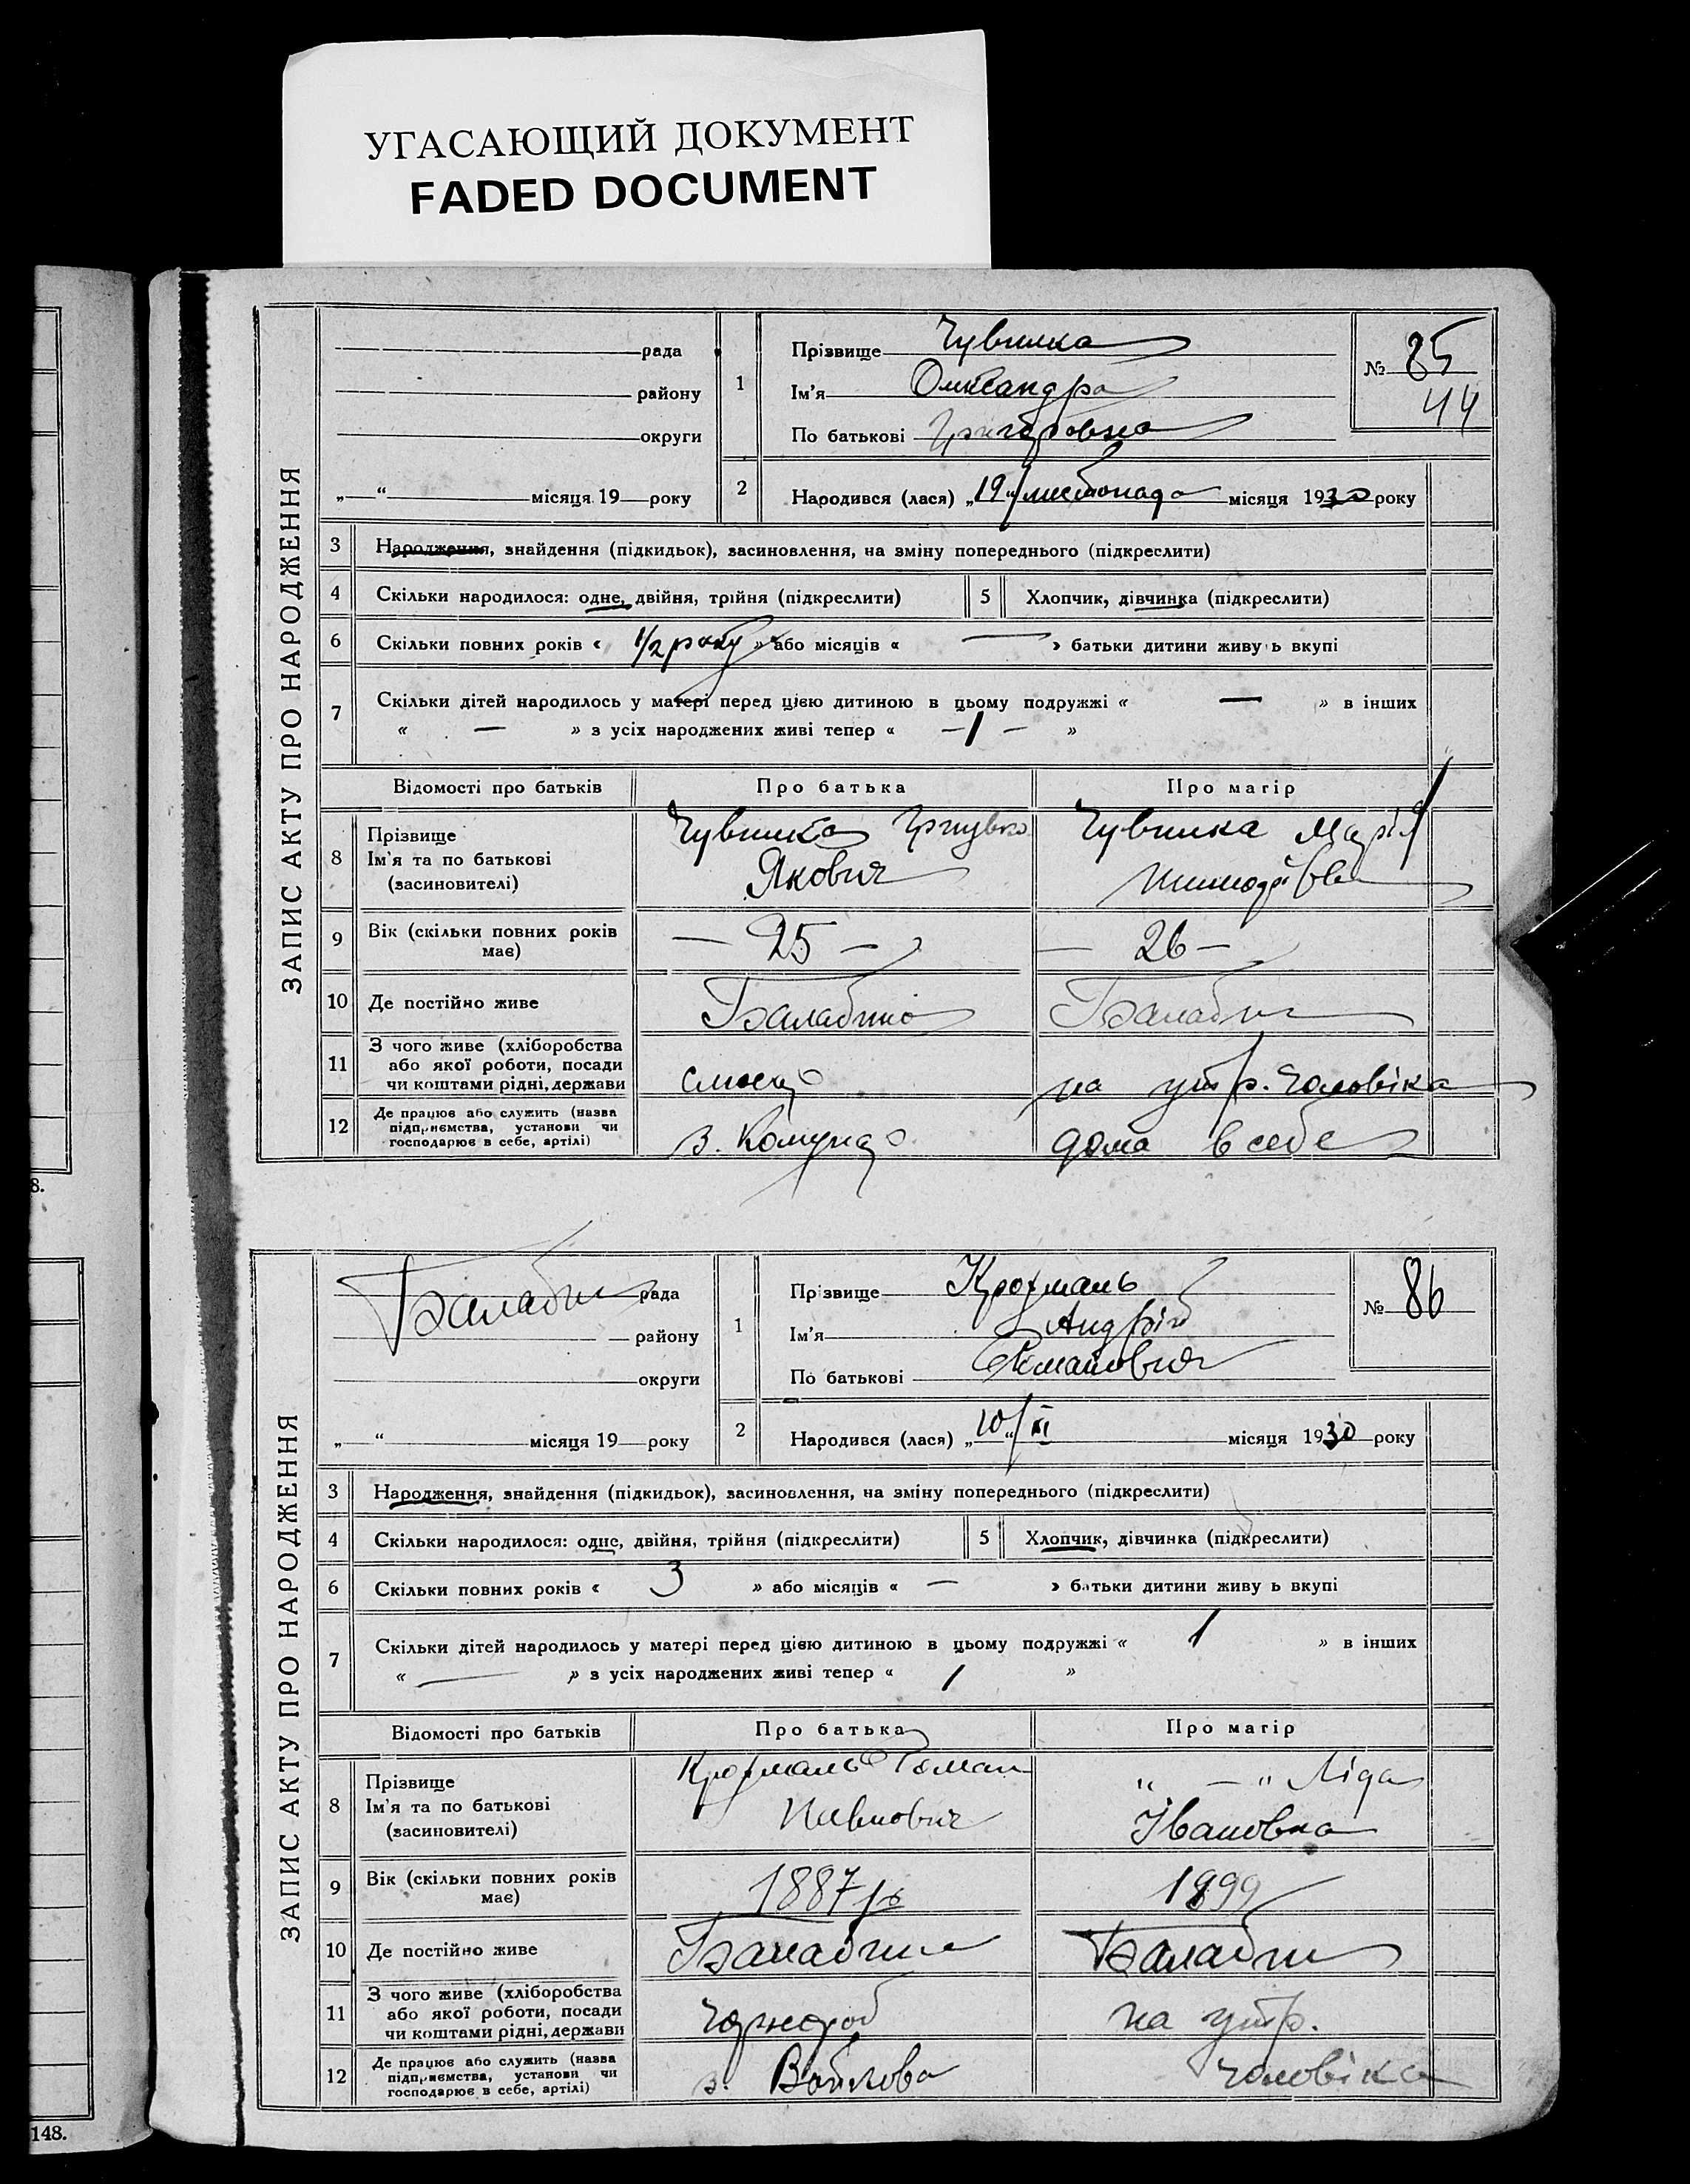 УГАСАЮЩИЙ ДОКУМЕНТ
FADED DOCUMENT
ЗАПИС АКТУ ПРО НАРОДЖЕННЯ
рада
району
округи
„ “ місяця 19 року
1
Прізвище Чувилка
Ім'я Олександра
По батькові Григоровна
№ 85
44
2
Народився (лася) „19“ листопада місяця 1930 року
3 Народження, знайдення (підкидьок), засиновлення, на зміну попереднього (підкреслити)
4 Скільки народилося: одне, двійня, трійня (підкреслити)
5 Хлопчик, дівчинка (підкреслити)
6 Скільки повних років « 1/2 року » або місяців « — » батьки дитини живуть вкупі
7 Скільки дітей народилось у матері перед цією дитиною в цьому подружжі « — » в інших
« — » з усіх народжених живі тепер « — 1 — »
Відомості про батьків Про батька Про матір
8 Прізвище
Ім'я та по батькові
(засиновителі)
Чувилка
Якович
Чувилка Марія
9 Вік (скільки повних років
має)
— 25 —
— 26 —
10 Де постійно живе
Балабино
Балабин
11 З чого живе (хліборобства
або якої роботи, посади
чи коштами рідні, держави
на утр. чоловіка
12 Де працює або служить (назва
підприємства, установи чи
господарює в себе, артілі)
з. Комунар
дома в себе
8.
ЗАПИС АКТУ ПРО НАРОДЖЕННЯ
Балабин рада
району
округи
„ “ місяця 19 року
1
Прізвище Крохмаль
Ім'я Андрій
По батькові Романович
№ 86
2
Народився (лася) „10“ XI місяця 1930 року
3 Народження, знайдення (підкидьок), засиновлення, на зміну попереднього (підкреслити)
4 Скільки народилося: одне, двійня, трійня (підкреслити)
5 Хлопчик, дівчинка (підкреслити)
6 Скільки повних років « 3 » або місяців « — » батьки дитини живу ь вкупі
7 Скільки дітей народилось у матері перед цією дитиною в цьому подружжі « 1 » в інших
« — » з усіх народжених живі тепер « 1 »
Відомості про батьків Про батька Про матір
8 Прізвище
Ім'я та по батькові
(засиновителі)
Крохмаль Роман
Павлович
„ — „ Ліда
Івановна
9 Вік (скільки повних років
має)
1887 р
1899
10 Де постійно живе
Балабин
Балабин
11 З чого живе (хліборобства
або якої роботи, посади
чи коштами рідні, держави
Чорнороб
на утр.
12 Де працює або служить (назва
підприємства, установи чи
господарює в себе, артілі)
з. Войкова
чоловіка
148.